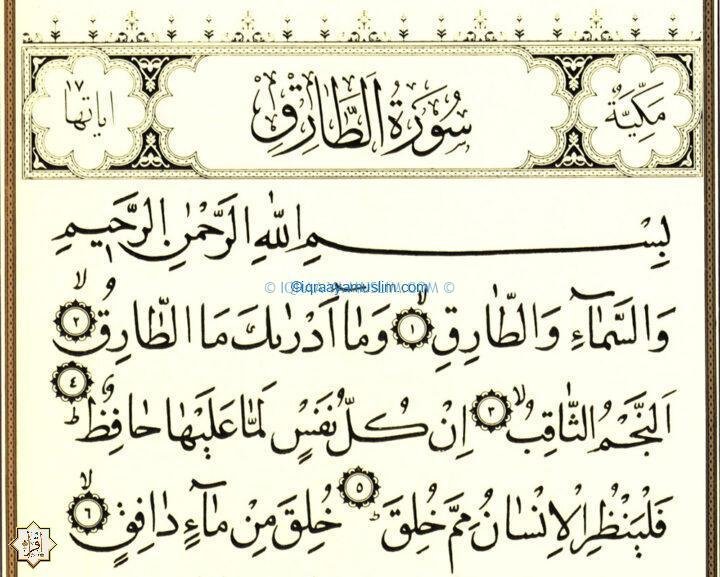 مَكِّيَّةٌ سُورَةُ الطَّارِقِ اٰيَاتُهَا ١٧
بِسْمِ اللّٰهِ الرَّحْمٰنِ الرَّحٖيمِ
© iqraayamuslim.com ©
وَالسَّمَٓاءِ وَالطَّارِقِۙ ﴿١﴾ وَمَٓا اَدْرٰيكَ مَا الطَّارِقُۙ ﴿٢﴾
اَلنَّجْمُ الثَّاقِبُۙ ﴿٣﴾ اِنْ كُلُّ نَفْسٍ لَمَّا عَلَيْهَا حَافِظٌؕ ﴿٤﴾
فَلْيَنْظُرِ الْاِنْسَانُ مِمَّ خُلِقَؕ ﴿٥﴾ خُلِقَ مِنْ مَٓاءٍ دَافِقٍۙ ﴿٦﴾